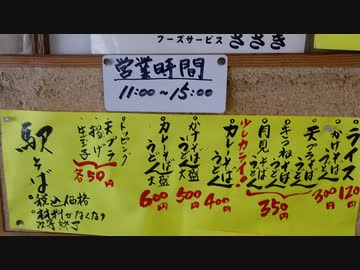 フーズサービス ささき
営業時間
11:00~15:00
ライス 120円
かけそば うどん 300円
天プラそば うどん
きつねそば うどん
月見そば うどん
350円
少しカライ!
カレーそば うどん 400円
かけそば うどん 大盛 500円
カレーそば うどん 大盛 600円
トッピング
天プラ
揚げ
生玉子
各50円
駅そば
税込価格
材料がなくなり
次第終了